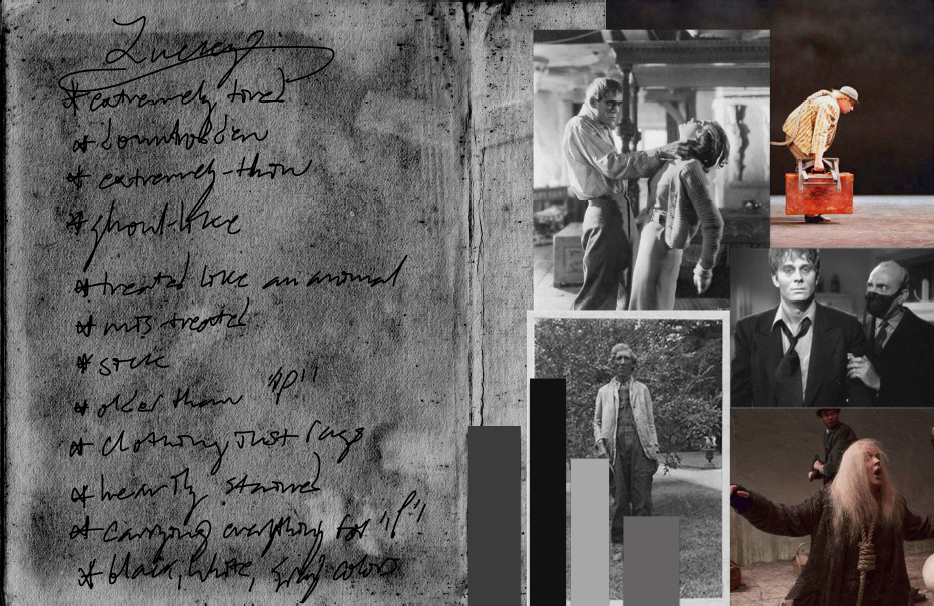 * extremely tired
* downtrodden
* extremely-thin
* ghoul-like
* treated like an animal
* mistreated
* sick
* older than "P"
* clothing, just rags
* heavily stained
* carrying everything for "P"
* black, white, grey colors